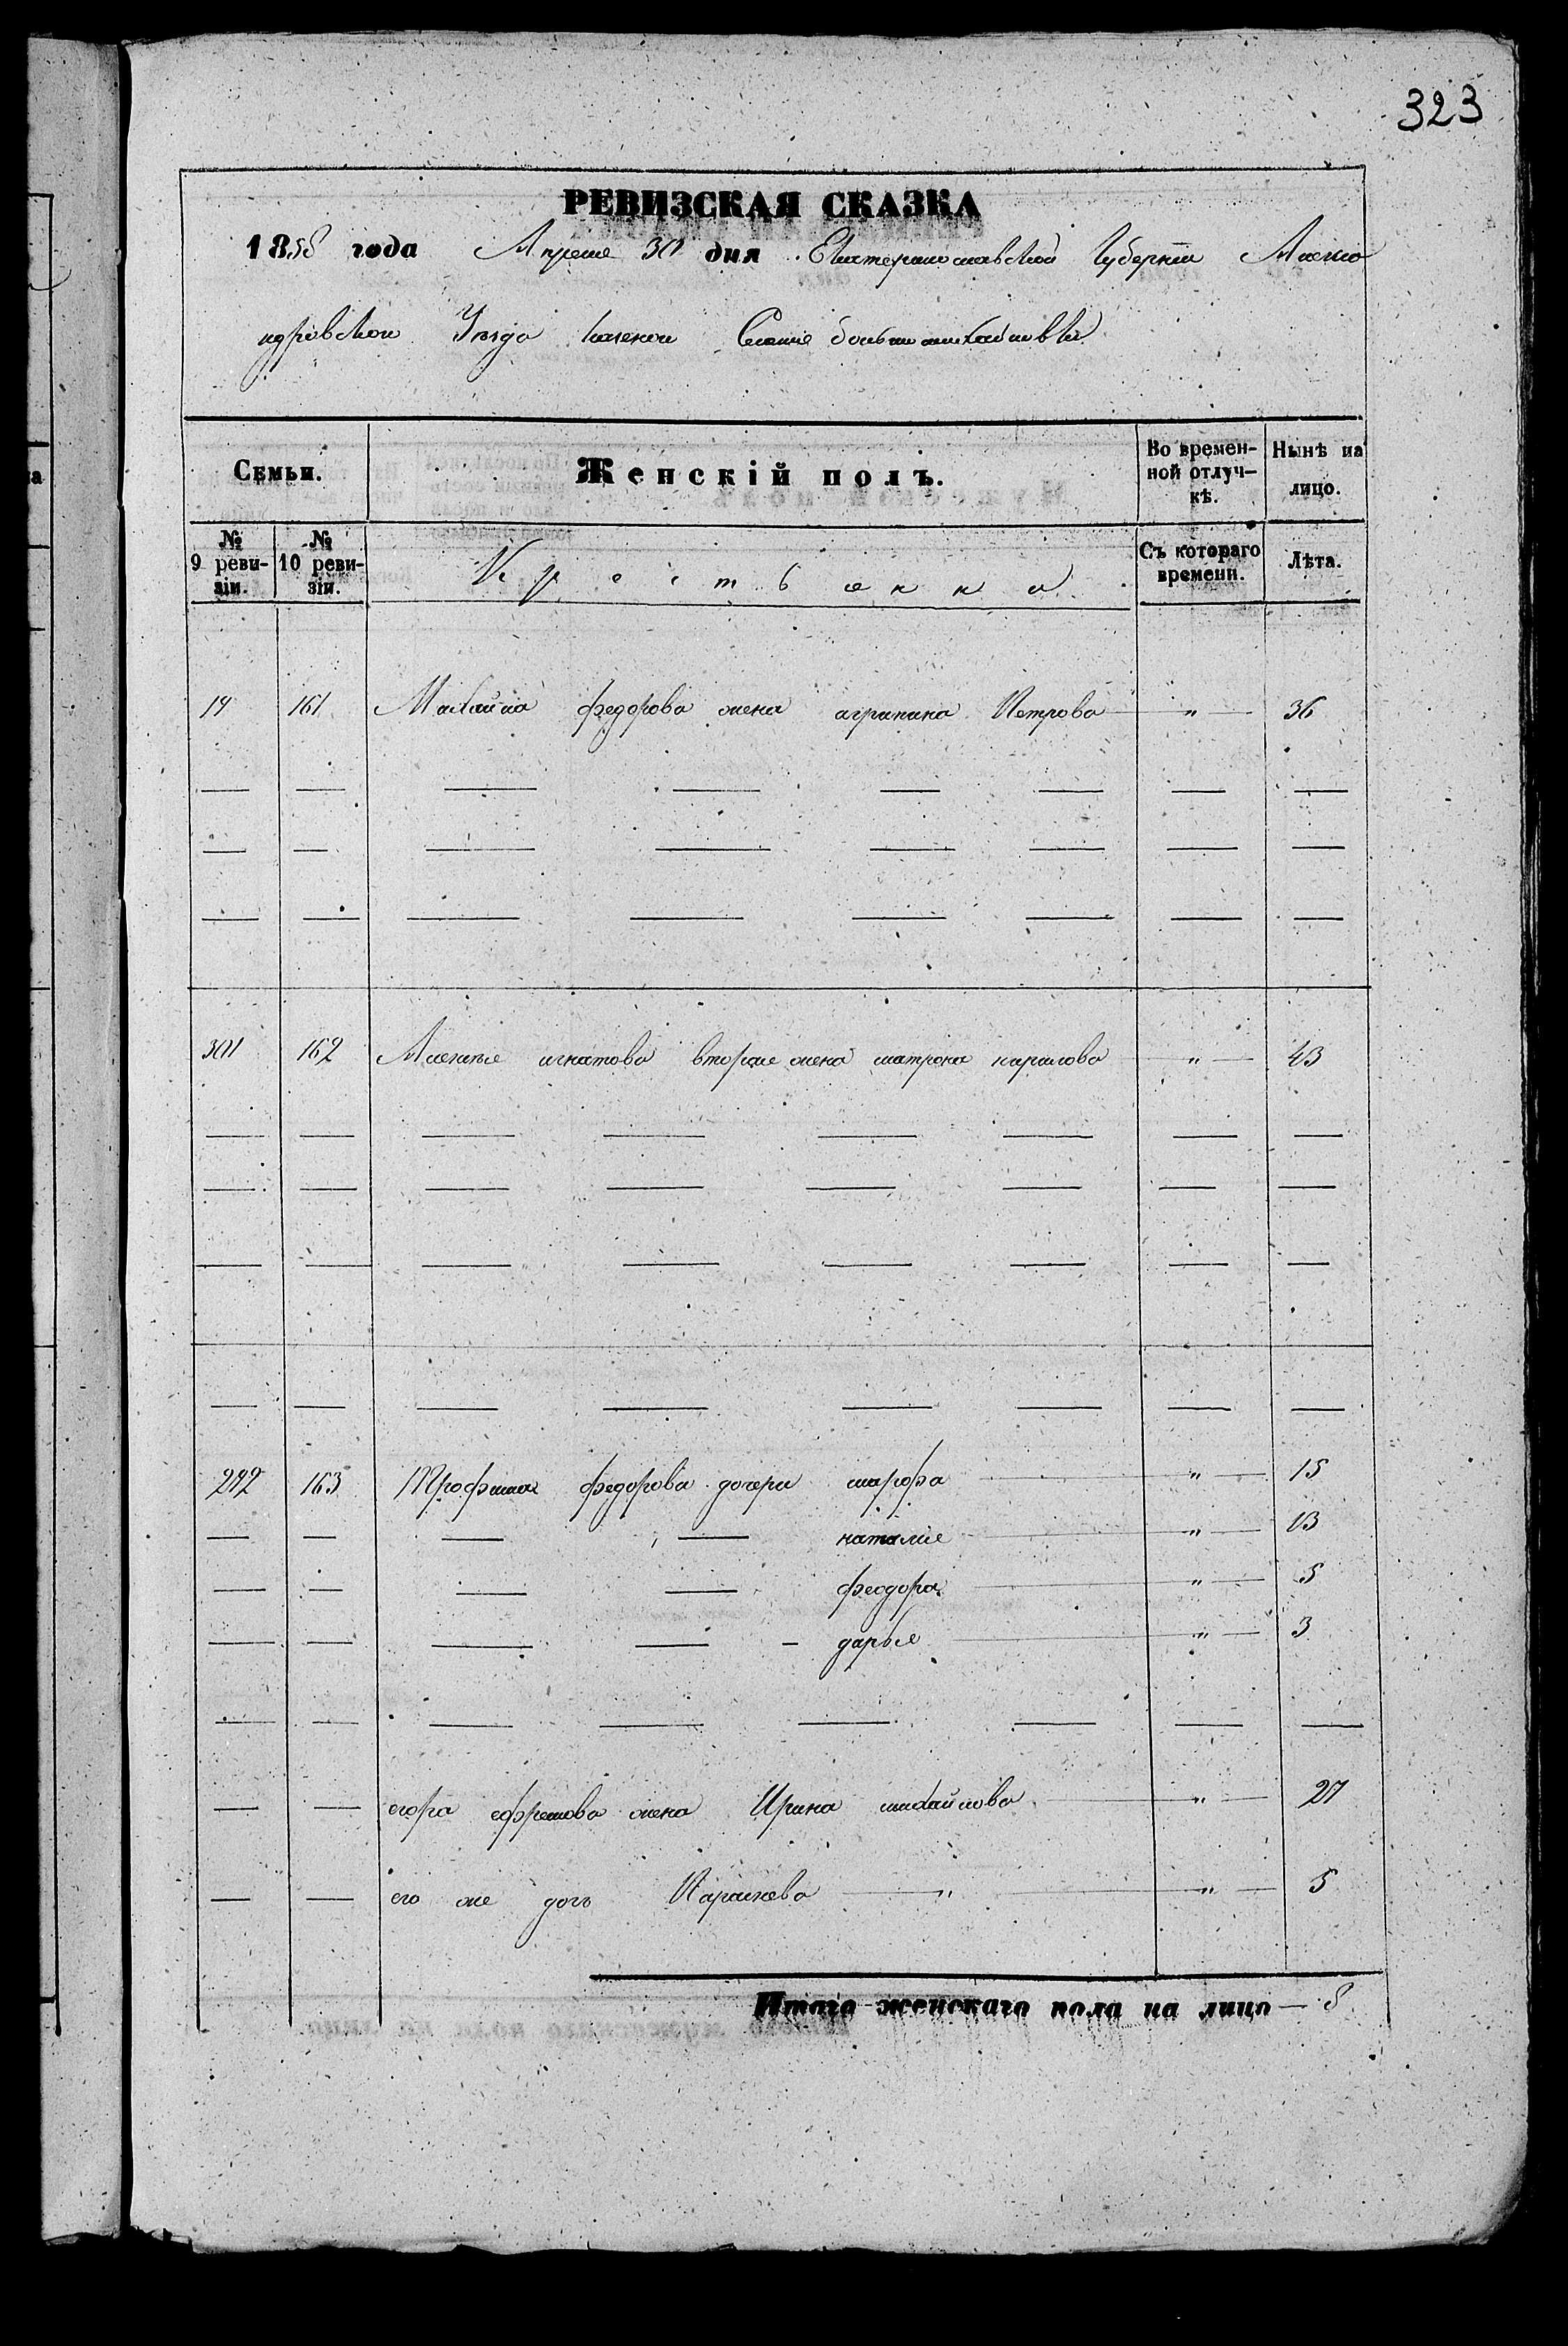 323
РЕВИЗСКАЯ СКАЗКА
1858 года Апреля 30 дня Екатеринославской Губерніи Алекса
ндровскои Уезда Селение большомихайловки
Семьи. Женскій полъ. Во времен- Нынѣ на
ной отлуч- лицо.
кѣ.
№ №
9 реви- 10 реви-
зіи. зіи.
Съ котораго Лѣта.
времени.
19 161 Михайла федорова жена агрипина Петрова — „ — 36
— — — — — — — —
— — — — — — — —
— — — — — — — —
301 162 Алексея игнатова вторая жена матрона кирилова — „ — 43
— — — — — — — —
— — — — — — — —
— — — — — — — —
— — — — — — — —
163 Трофима федорова дочери марфа — „ — 15
— — — — наталие — „ — 13
— — — — феодора — „ — 5
— — — — - дарье — „ — 3
— — — — — — — —
— — егора ефремова жена Ирина михайлова — „ — 27
— — его же дочъ Параскева — „ — „ — 5
Итого женскаго пола на лицо — 8